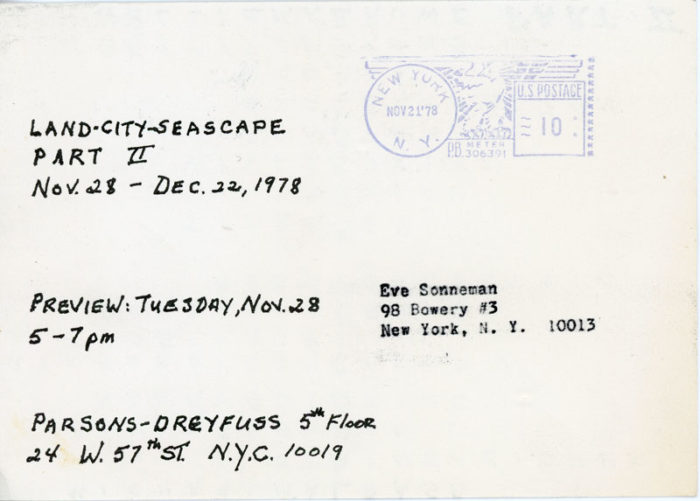 LAND-CITY-SEASCAPE
PART II
NOV. 28 - DEC. 22, 1978
NEW YORK
NOV 21 '78
N. Y.
U.S. POSTAGE
10
P.B. METER
306391
PREVIEW: TUESDAY, NOV. 28
5-7pm
Eve Sonneman
98 Bowery #3
New York, N. Y. 10013
PARSONS-DREYFUSS 5th FLOOR
24 W. 57th ST. N.Y.C. 10019